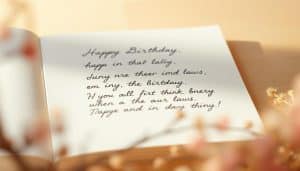 Happy Birthday,
happ in that lally,
Juny are theer ind laws,
em iny, the birtday.
W you all first think bnery
when a the aur laws.
Napye and in day thing!